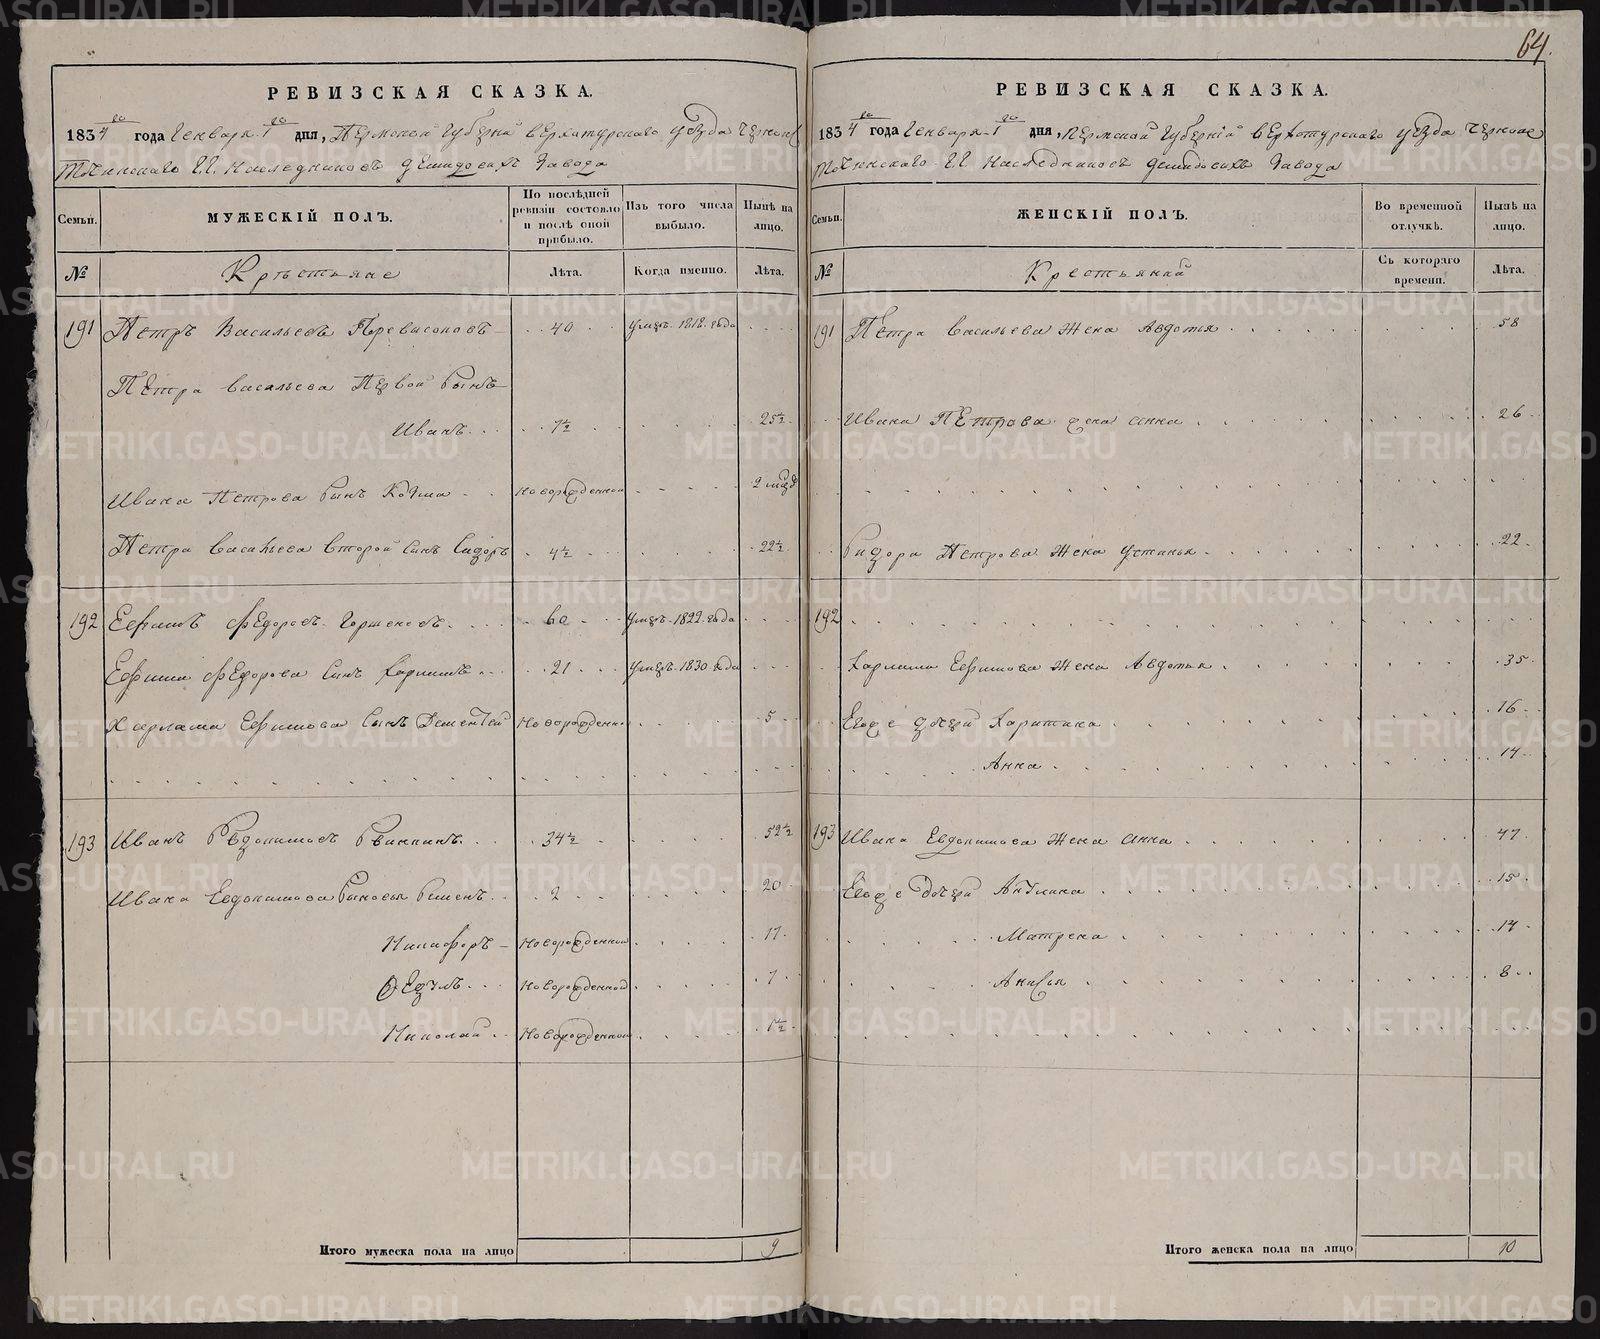 64.
РЕВИЗСКАЯ СКАЗКА.
1834го года Генваря 1го дня, Пермской Губернiи Верхотурскаго уѣзда Черноис
точинскаго Г.Г. Наследниковъ Демидовыхъ Завода
Семьи. МУЖЕСКIЙ ПОЛЪ. По послѣдней ревизiи состояло и послѣ оной прибыло. Изъ того числа выбыло. Нынѣ на лицо.
№ Крѣстьяне Лѣта. Когда именно. Лѣта.
191 Петръ Васильевъ 40 умеръ 1818 года
Петра Васильева Первой Сынъ
Иванъ 7½ 25½
Ивана Петрова Сынъ Козма Новорожденной 2 мѣся
Петра Васильева Второй Сынъ Сидоръ 4½ 22½
192 Ефимъ Федоровъ Горшеновъ 60 умеръ 1822 года
Ефима Федорова Сынъ Харламъ 21 умеръ 1830 года
Харлама Ефимова Сынъ Дементей Новорожденн 5
193 Иванъ Евдокимовъ 34½ 52½
Ивана Евдокимова Сыновья Семенъ 2 20
Никифоръ Новорожденной 17
Федулъ Новорожденной 7
Николай Новорожденной 1½
Итого мужеска пола на лицо 9
РЕВИЗСКАЯ СКАЗКА.
1834го года Генваря 1го дня, Пермской Губернiй Верхотурскаго уѣзда Черноис
точинскаго Г.Г. Наследниковъ Демидовыхъ Завода
Семьи. ЖЕНСКIЙ ПОЛЪ. Во временной отлучкѣ. Нынѣ на лицо.
№ Крестьянки Съ котораго времени. Лѣта.
191 Петра Васильева Жена Авдотья 58
Ивана Петрова жена Анна 26
Сидора Петрова Жена Устинья 22
192
Харлама Ефимова Жена Авдотья 35
Евоже дочери Харитина 16
Анна 14
193 Ивана Евдокимова Жена Анна 47
Евоже Дочери Акулина 15
Матрена 14
Анисья 8
Итого женска пола на лицо 10
METRIKI.GASO-URAL.RU